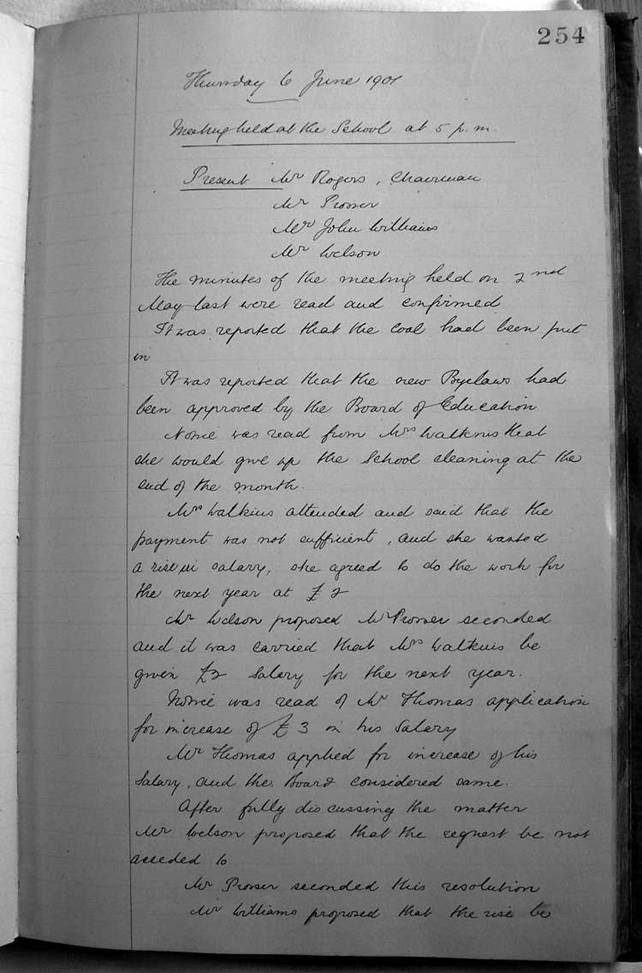 254
Thursday 6 June 1901
Meeting held at the School at 5 p.m.
Present Mr Rogers, Chairman
Mr Prosser
Mr John Williams
Mr Welson
The minutes of the meeting held on 2nd
May last were read and confirmed
It was reported that the coal had been put
in
It was reported that the new Byelaws had
been approved by the Board of Education
Notice was read from Mrs Watkins that
she would give up the School cleaning at the
end of the month.
Mrs Watkins attended and said that the
payment was not sufficient, and she wanted
a rise in salary, she agreed to do the work for
the next year at £2
Mr Welson proposed Mr Prosser seconded
and it was carried that Mrs Watkins be
given £2 Salary for the next year.
Notice was read of Mr Thomas application
for increase of £3 in his Salary
Mr Thomas applied for increase of his
Salary, and the Board considered same.
After fully discussing the matter
Mr Welson proposed that the request be not
acceded to
Mr Prosser seconded this resolution
Mr Williams proposed that the rise be